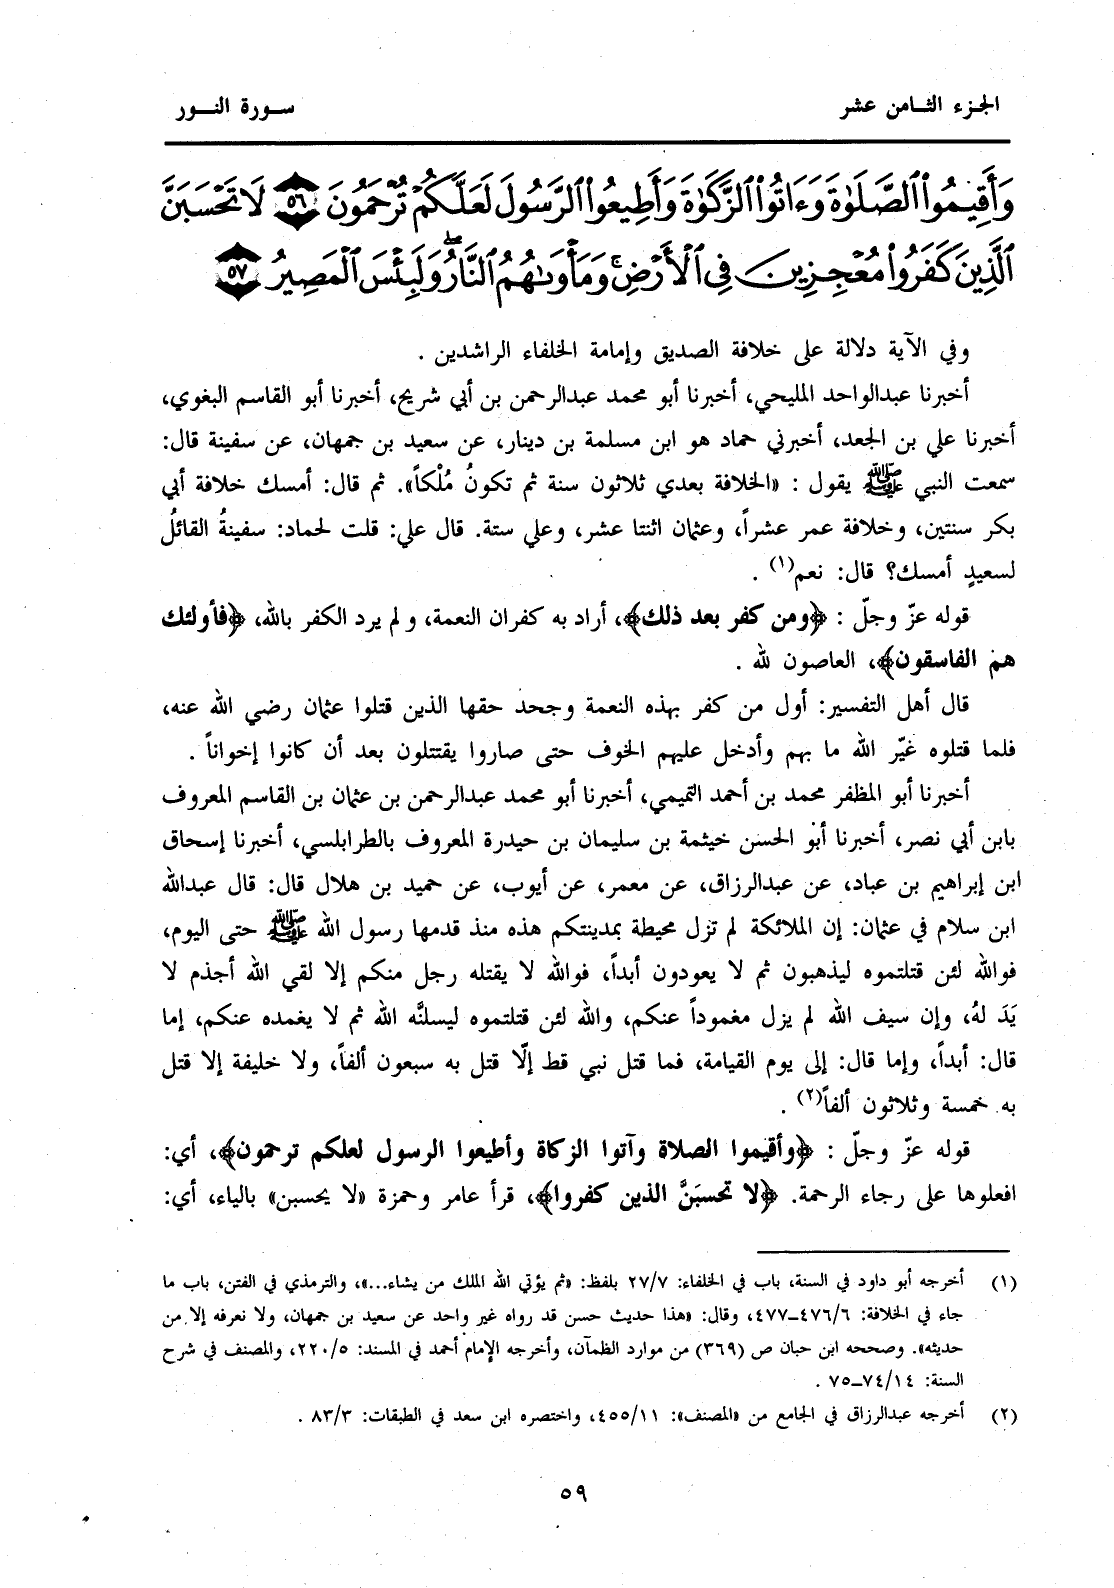 الجزء الثامن عشر
سورة النور
وَأَقِيمُوا۟ ٱلصَّلَوٰةَ وَءَاتُوا۟ ٱلزَّكَوٰةَ وَأَطِيعُوا۟ ٱلرَّسُولَ لَعَلَّكُمْ تُرْحَمُونَ ٥٦ لَا تَحْسَبَنَّ
ٱلَّذِينَ كَفَرُوا۟ مُعْجِزِينَ فِى ٱلْأَرْضِ ۚ وَمَأْوَىٰهُمُ ٱلنَّارُ ۖ وَلَبِئْسَ ٱلْمَصِيرُ ٥٧
وفي الآية دلالة على خلافة الصديق وإمامة الخلفاء الراشدين .
أخبرنا عبدالواحد المليحي، أخبرنا أبو محمد عبدالرحمن بن أبي شريح، أخبرنا أبو القاسم البغوي،
أخبرنا علي بن الجعد، أخبرني حماد هو ابن مسلمة بن دينار، عن سعيد بن جمهان، عن سفينة قال:
سمعت النبي ﷺ يقول : «الخلافة بعدي ثلاثون سنة ثم تكونُ مُلْكاً». ثم قال: أمسك خلافة أبي
بكر سنتين، وخلافة عمر عشراً، وعثمان اثنتا عشر، وعلي ستة. قال علي: قلت لحماد: سفينةُ القائلُ
لسعيدٍ أمسك؟ قال: نعم(١) .
قوله عزّ وجلّ : ﴿ومن كفر بعد ذلك﴾، أراد به كفران النعمة، ولم يرد الكفر بالله، ﴿فأولئك
هم الفاسقون﴾، العاصون لله .
قال أهل التفسير: أول من كفر بهذه النعمة وجحد حقها الذين قتلوا عثمان رضي الله عنه،
فلما قتلوه غيّر الله ما بهم وأدخل عليهم الخوف حتى صاروا يقتتلون بعد أن كانوا إخواناً .
أخبرنا أبو المظفر محمد بن أحمد التميمي، أخبرنا أبو محمد عبدالرحمن بن عثمان بن القاسم المعروف
بابن أبي نصر، أخبرنا أبو الحسن خيثمة بن سليمان بن حيدرة المعروف بالطرابلسي، أخبرنا إسحاق
ابن إبراهيم بن عباد، عن عبدالرزاق، عن معمر، عن أيوب، عن حميد بن هلال قال: قال عبدالله
ابن سلام في عثمان: إن الملائكة لم تزل محيطة بمدينتكم هذه منذ قدمها رسول الله ﷺ حتى اليوم،
فوالله لئن قتلتموه ليذهبون ثم لا يعودون أبداً، فوالله لا يقتله رجل منكم إلا لقي الله أجذم لا
يَدَ لهُ، وإن سيف الله لم يزل مغموداً عنكم، والله لئن قتلتموه ليسلنَّه الله ثم لا يغمده عنكم، إما
قال: أبداً، وإما قال: إلى يوم القيامة، فما قتل نبي قط إلّا قتل به سبعون ألفاً، ولا خليفة إلا قتل
به خمسة وثلاثون ألفاً(٢) .
قوله عزّ وجلّ : ﴿وأقيموا الصلاة وآتوا الزكاة وأطيعوا الرسول لعلكم ترحمون﴾، أي:
افعلوها على رجاء الرحمة. ﴿لا تحسبَنَّ الذين كفروا﴾، قرأ عامر وحمزة «لا يحسبن» بالياء، أي:
(١) أخرجه أبو داود في السنة، باب في الخلفاء: ٢٧/٧ بلفظ: «ثم يؤتي الله الملك من يشاء...»، والترمذي في الفتن، باب ما
جاء في الخلافة: ٤٧٦/٦–٤٧٧، وقال: «هذا حديث حسن قد رواه غير واحد عن سعيد بن جمهان، ولا نعرفه إلا من
حديثه». وصححه ابن حبان ص (٣٦٩) من موارد الظمآن، وأخرجه الإمام أحمد في المسند: ٢٢٠/٥، والمصنف في شرح
السنة: ٧٤/١٤–٧٥ .
(٢) أخرجه عبدالرزاق في الجامع من «المصنف»: ٤٥٥/١١، واختصره ابن سعد في الطبقات: ٨٣/٣ .
٥٩